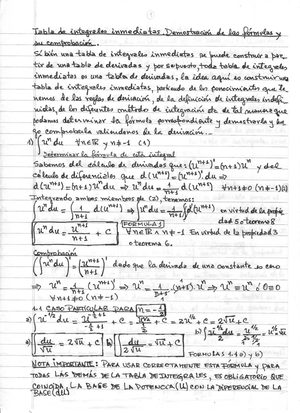 Tabla de integrales inmediatas. Demostración de las fórmulas y
su comprobación.
Si bien una tabla de integrales inmediatas se puede construir a par-
tir de una tabla de derivadas y por supuesto, toda tabla de integrales
inmediatas es una tabla de derivadas, la idea aquí es construir una
tabla de integrales inmediatas, partiendo de los conocimientos que te-
nemos de las reglas de derivación, de la definición de integrales indefi-
nidas, de los diferentes métodos de integración de tal manera que
podamos determinar la fórmula correspondiente y demostrarla y lue-
go comprobarla valiéndonos de la derivación.
1) ∫uⁿdu ∀n∈ℝ y n≠-1 (1)
Determinar la fórmula de esta integral
Sabemos del cálculo de derivadas que: (uⁿ⁺¹)'=(n+1)uⁿ y del
cálculo de diferenciales que d(uⁿ⁺¹)=(uⁿ⁺¹)'.du ⇒
d(uⁿ⁺¹)=(n+1)uⁿdu ⇒ uⁿdu = 1/(n+1) d(uⁿ⁺¹) ∀n+1≠0 (n≠-1)(2)
Integrando ambos miembros de (2), tenemos:
∫uⁿdu = ∫1/(n+1) d(uⁿ⁺¹) ⇒ ∫uⁿdu = 1/(n+1) ∫d(uⁿ⁺¹) en virtud de la propie
dad 5 o teorema 8
∫uⁿdu = uⁿ⁺¹/(n+1) + C FORMULA 1 ∀n∈ℝ ∧ n≠-1 En virtud de la propiedad 3
o teorema 6.
Comprobación
(∫uⁿdu)' = (uⁿ⁺¹/(n+1))' dado que la derivada de una constante es cero
⇒ uⁿ = 1/(n+1) (uⁿ⁺¹)' ⇒ uⁿ = 1/(n+1) . (n+1) uⁿ ⇒ uⁿ = uⁿ ó 0≡0
∀n+1≠0 (n≠-1)
1.1 CASO PARTICULAR PARA n=-1/2
FORMULAS 1.1 a) y b)
NOTA IMPORTANTE: PARA USAR CORRECTAMENTE ESTA FORMULA Y PARA
TODAS LAS DEMÁS DE LA TABLA DE INTEGRALES, ES OBLIGATORIO QUE
COINCIDA, LA BASE DE LA POTENCIA (U) CON LA DIFERENCIAL DE LA
BASE (dU)